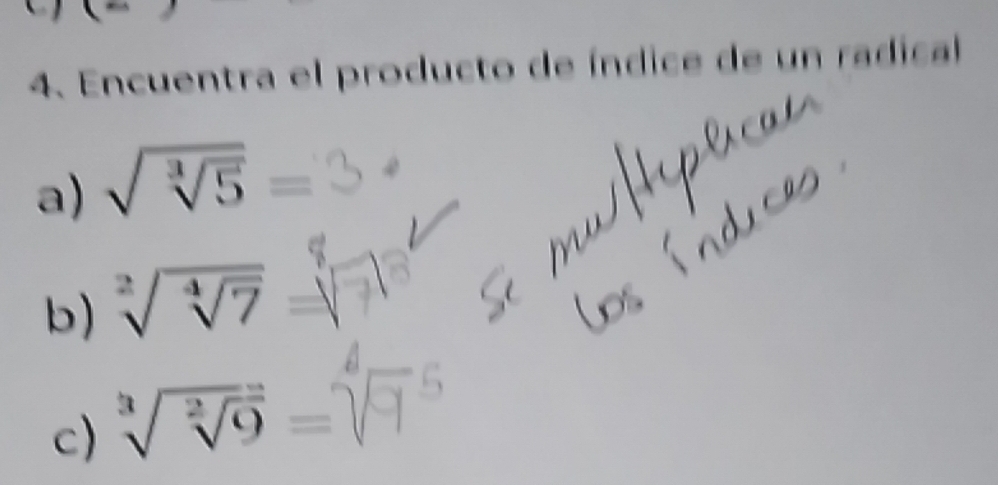 4. Encuentra el producto de índice de un radical
a) √∛5 = 3
b) ²√⁴√7 = ⁸√7
c) ³√²√9 = √9 5
se multiplican
los índices.